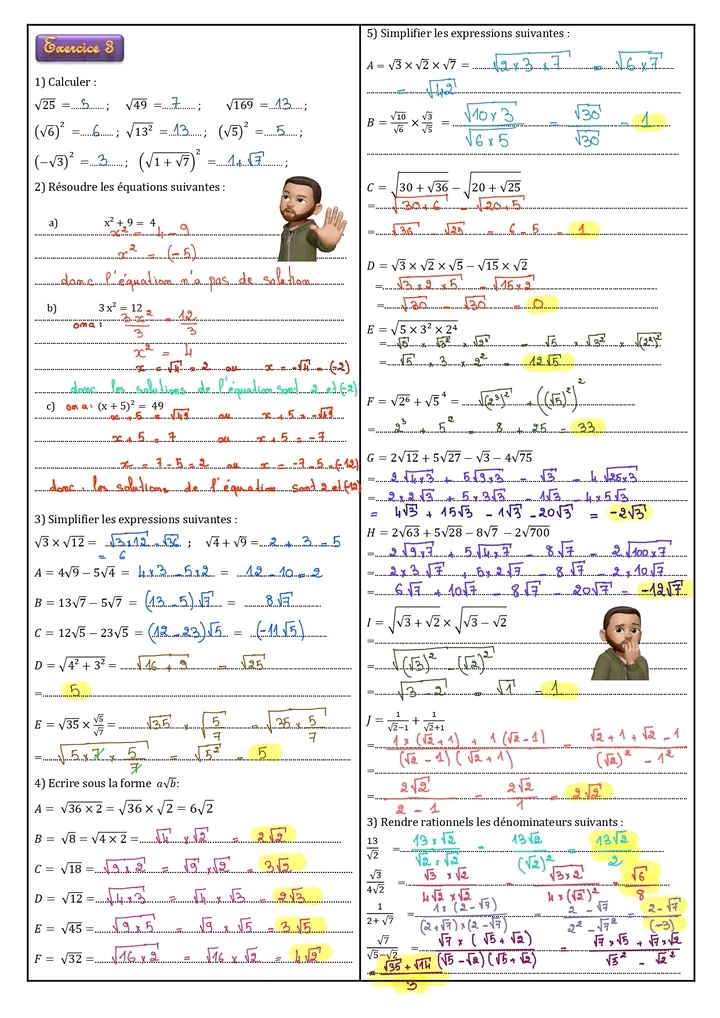 Exercice 3
1) Calculer :
√25 = 5 ; √49 = 7 ; √169 = 13 ;
(√6)² = 6 ; √13² = 13 ; (√5)² = 5 ;
(−√3)² = 3 ; (√(1 + √7))² = 1 + √7 ;
2) Résoudre les équations suivantes :
a) x² + 9 = 4
x² = 4 − 9
x² = (−5)
donc l'équation n'a pas de solution
b) 3 x² = 12
on a : 3x²/3 = 12/3
x² = 4
x = √4 = 2 ou x = −√4 = (−2)
donc les solutions de l'équation sont 2 et (−2)
c) on a : (x + 5)² = 49
x + 5 = √49 ou x + 5 = −√49
x + 5 = 7 ou x + 5 = −7
x = 7 − 5 = 2 ou x = −7 − 5 = (−12)
donc : les solutions de l'équation sont 2 et (−12
3) Simplifier les expressions suivantes :
√3 × √12 = √(3×12) = √36 ; √4 + √9 = 2 + 3 = 5
= 6
A = 4√9 − 5√4 = 4×3 − 5×2 = 12 − 10 = 2
B = 13√7 − 5√7 = (13 − 5)√7 = 8√7
C = 12√5 − 23√5 = (12 − 23)√5 = (−11√5)
D = √(4² + 3²) = √(16 + 9) = √25
= 5
E = √35 × √5/√7 = √35 × √(5/7) = √(35 × 5/7)
= √(5 × 7 × 5/7) = √5² = 5
4) Ecrire sous la forme a√b:
A = √(36 × 2) = √36 × √2 = 6√2
B = √8 = √(4 × 2) = √4 × √2 = 2√2
C = √18 = √(9 × 2) = √9 × √2 = 3√2
D = √12 = √(4×3) = √4 × √3 = 2√3
E = √45 = √(9×5) = √9 × √5 = 3√5
F = √32 = √(16×2) = √16 × √2 = 4√2
5) Simplifier les expressions suivantes :
A = √3 × √2 × √7 = √(2×3×7) = √(6×7)
= √42
B = √10/√6 × √3/√5 = √(10×3)/√(6×5) = √30/√30 = 1
C = √(30 + √36) − √(20 + √25)
= √(30+6) − √(20+5)
= √36 − √25 = 6 − 5 = 1
D = √3 × √2 × √5 − √15 × √2
= √(3×2×5) − √(15×2)
= √30 − √30 = 0
E = √(5 × 3² × 2⁴)
= √5 × √3² × √2⁴ = √5 × √3² × √(2²)²
= √5 × 3 × 2² = 12√5
F = √2⁶ + √5⁴ = √(2³)² + ((√5)²)²
= 2³ + 5² = 8 + 25 = 33
G = 2√12 + 5√27 − √3 − 4√75
= 2√(4×3) + 5√(9×3) − √3 − 4√(25×3)
= 2×2√3 + 5×3√3 − 1√3 − 4×5√3
= 4√3 + 15√3 − 1√3 − 20√3 = −2√3
H = 2√63 + 5√28 − 8√7 − 2√700
= 2√(9×7) + 5√(4×7) − 8√7 − 2√(100×7)
= 2×3√7 + 5×2√7 − 8√7 − 2×10√7
= 6√7 + 10√7 − 8√7 − 20√7 = −12√7
I = √(√3 + √2) × √(√3 − √2)
=
= √((√3)² − (√2)²)
= √(3 − 2) = √1 = 1
J = 1/(√2−1) + 1/(√2+1)
= (1×(√2+1) + 1(√2−1))/((√2−1)(√2+1)) = (√2+1+√2−1)/((√2)² − 1²)
= 2√2/(2−1) = 2√2/1 = 2√2
3) Rendre rationnels les dénominateurs suivants :
13/√2 = (13×√2)/(√2×√2) = 13√2/(√2)² = 13√2/2
√3/4√2 = (√3×√2)/(4√2×√2) = √(3×2)/(4×(√2)²) = √6/8
1/(2+√7) = (1×(2−√7))/((2+√7)×(2−√7)) = (2−√7)/(2²−√7²) = (2−√7)/(−3)
√7/(√5−√2) = (√7×(√5+√2))/((√5−√2)(√5+√2)) = (√7×√5+√7×√2)/(√5²−√2²)
= (√35+√14)/3